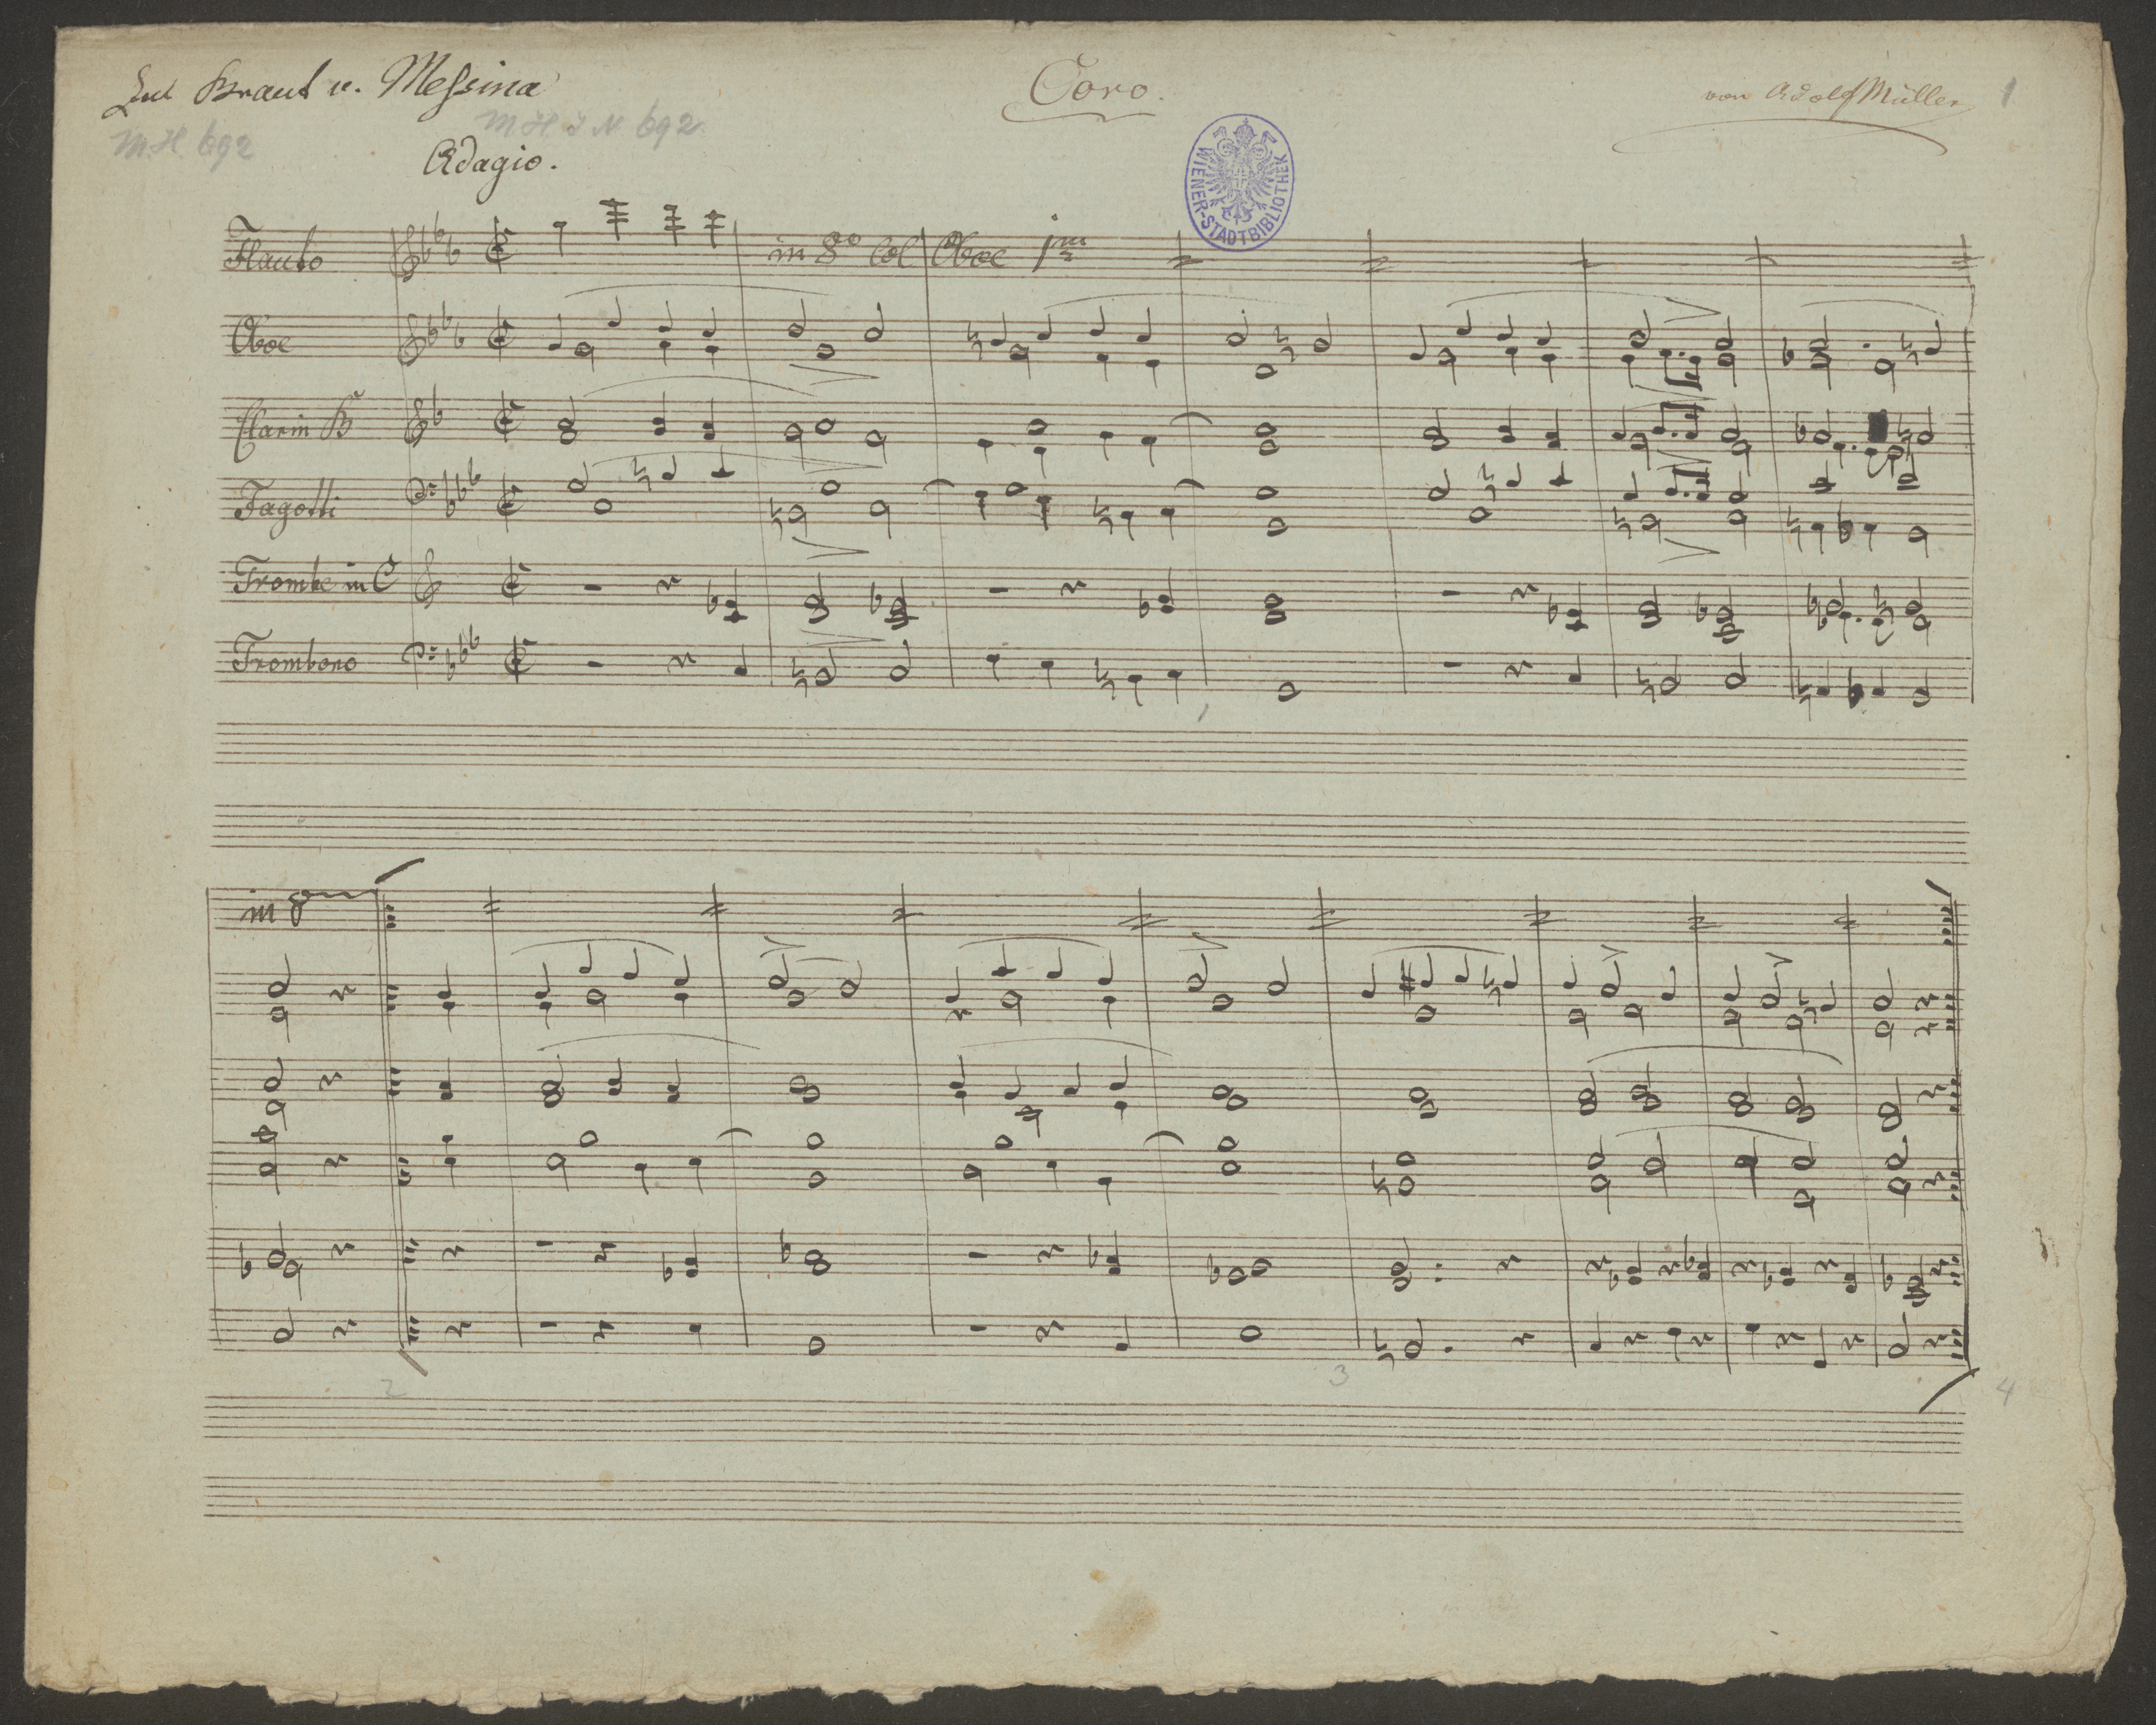 Zur Braut v. Messina
Coro.
von Adolf Müller
1
MH 692
MHIN 692
Adagio.
WIENER-STADTBIBLIOTHEK
Flauto
in 8º Col Oboe 1mo
Oboe
Clarin B
Fagotti
Trombe in C
Trombono
1
in 8
2
3
4